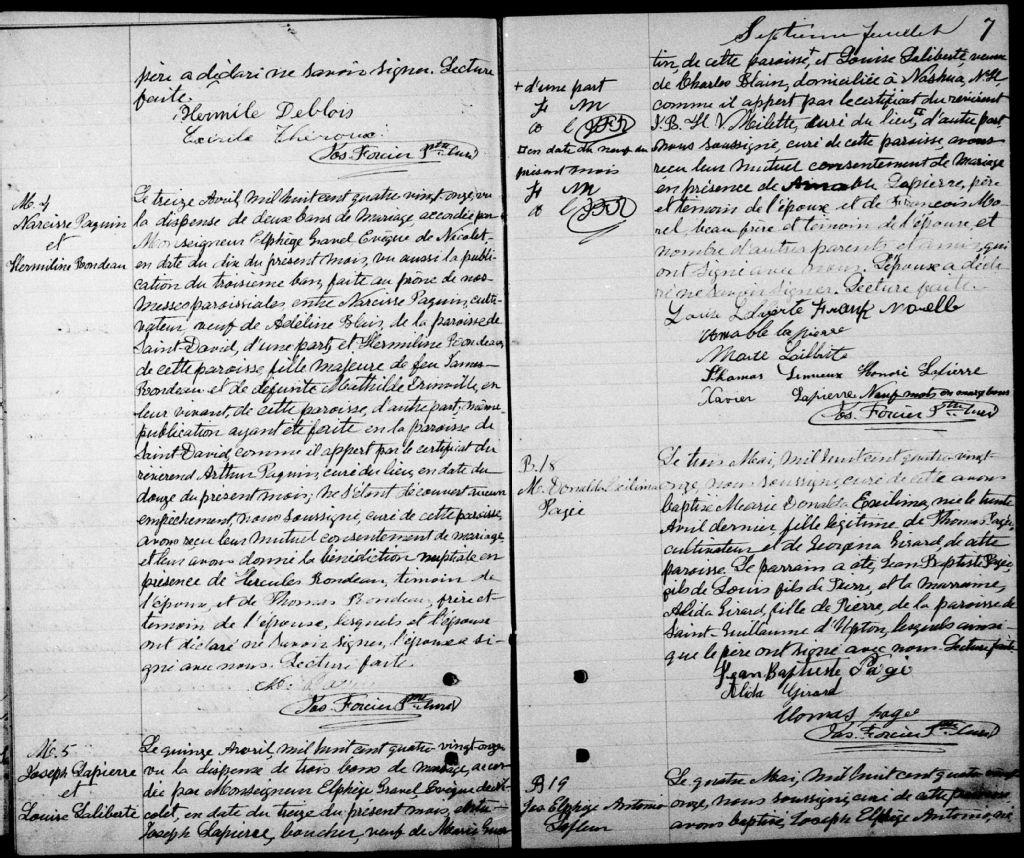 père a déclaré ne savoir signer. Lecture
faite.
Hermile Deblois
Exirile Theroux
Jos. Forcier Ptre Curé
M. 4
Narcisse Paquin
et
Hermiline Rondeau
Le treize Avril, mil huit cent quatre vingt onze, vu
la dispense de deux bans de mariage, accordée par
Monseigneur Elphège Gravel Evêque de Nicolet
en date du dix du présent mois, vu aussi la publi-
cation du troisième ban, faite au prône de nos
Messes paroissiales entre Narcisse Paquin, culti-
vateur, veuf de Adéline Blais, de la paroisse de
Saint-David, d'une part; et Hermiline Rondeau,
de cette paroisse, fille majeure de feu James
Rondeau et de défunte Mathilde en
leur vivant, de cette paroisse, d'autre part; même
publication ayant été faite en la paroisse de
Saint David, comme il appert par le certificat du
révérend Arthur Paquin, curé du lieu, en date du
douze du présent mois; ne s'étant découvert aucun
empêchement, nous soussigné, curé de cette paroisse,
avons reçu leur mutuel consentement de mariage,
et leur avons donné la bénédiction nuptiale en
présence de Hercules Rondeau, témoin de
l'époux, et de Thomas Rondeau, frère et
témoin de l'épouse, lesquels et l'épouse
ont déclaré ne savoir signer, l'époux a si-
gné avec nous. Lecture faite.
Jos. Forcier Ptre Curé
M. 5
Joseph Lapierre
et
Louise Laliberté
Le quinze Avril, mil huit cent quatre-vingt-onze
vu la dispense de trois bans de mariage, accor-
dée par Monseigneur Elphège Gravel Evêque de Ni-
colet, en date du treize du présent mois, entre
Joseph Lapierre, boucher, veuf de Marie
Septième feuillet 7
+ d'une part
¤ en date du neuf du
présent mois
tin, de cette paroisse, + et Louise Laliberté veuve
de Charles Blain, domiciliée à Nashua, N.H.,
comme il appert par le certificat du révérend
J. B. H. V. Milette, curé du lieu, ¤ d'autre part,
nous soussigné, curé de cette paroisse avons
reçu leur mutuel consentement de mariage
en présence de Amable Lapierre, père
et témoin de l'époux et de François Mo-
rel, beau frère et témoin de l'épouse, et
nombre d'autres parents et amis, qui
ont signé avec nous. L'épouse a décla-
ré ne savoir signer. Lecture faite.
Morelle
Amable lapierre
Thomas Lemieux Honoré Lapierre
Xavier Lapierre Neuf mots en marge bons
Jos. Forcier Ptre Curé
B. 18
M. Donalda Exilima
Pagée
Le trois Mai, mil huit cent quatre vingt
onze, nous soussigné, curé de cette avons
baptisé Marie Donalda Exilima, née le trente
Avril dernier, fille légitime de Thomas Pagée,
cultivateur et de Georgina Girard, de cette
paroisse. Le parrain a été, Jean Baptiste Pagé,
fils de Louis fils de Pierre, et la marraine,
Alida Girard, fille de Pierre, de la paroisse de
Saint-Guillaume d'Upton, lesquels ainsi
que le père ont signé avec nous. Lecture faite.
Jean Baptiste Pagé
Alida Girard
thomas page
Jos. Forcier Ptre Curé
B 19
Jos Elphège Antonio
Lafleur
Le quatre Mai, mil huit cent quatre vingt
onze, nous soussigné, curé de cette paroisse
avons baptisé, Joseph Elphège Antonio, né